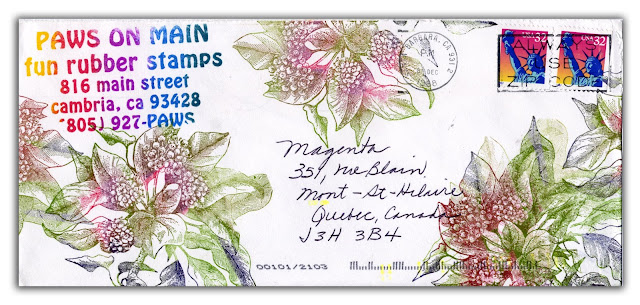 PAWS ON MAIN
fun rubber stamps
816 main street
cambria, ca 93428
(805) 927-PAWS
BARBARA, CA 931
PM
DEC
USA 32
USA 32
ALWAYS
USE
ZIP CODE
Magenta
351, rue Blain
Mont-St-Hilaire
Quebec, Canada
J3H 3B4
00101/2103